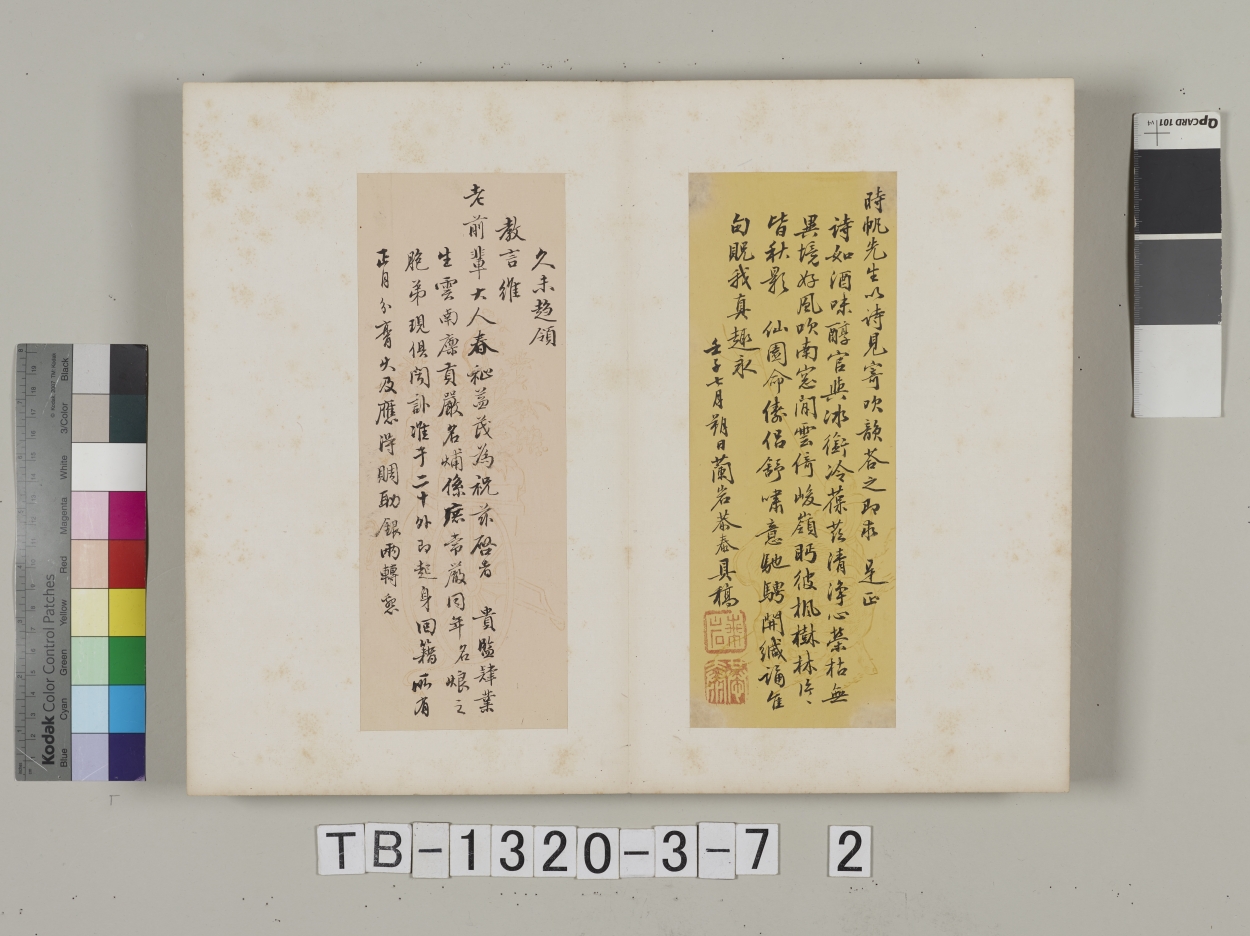 時帆先生以詩見寄次韻答之即求 是正
詩如酒味醇官與冰銜冷葆茲清淨心榮枯無
異境好風吹南窓閒雲倚峻嶺眄彼楓樹林片〻
皆秋影 仙園命儔侶舒嘯意馳騁開緘誦佳
句貺我真趣永
壬子七月朔日蘭岩恭泰具稿
久未趨領
教言維
老前輩大人春祉益茂為祝茲啓者 貴監肄業
生雲南廩貢嚴名煏係庶常嚴同年名烺之
胞弟現俱聞訃準于二十外即起身回籍所有
正月分膏火及應得賙助銀兩轉懇
TB-1320-3-7 2
Kodak Color Control Patches
© Kodak
Blue
Cyan
Green
Yellow
Red
Magenta
White
3/Color
Black
QPCARD 101